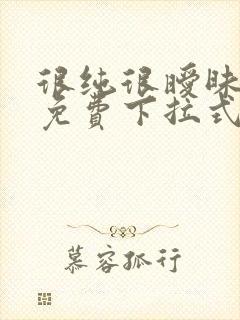 很纯很暧昧
免费下拉式
慕容孤行